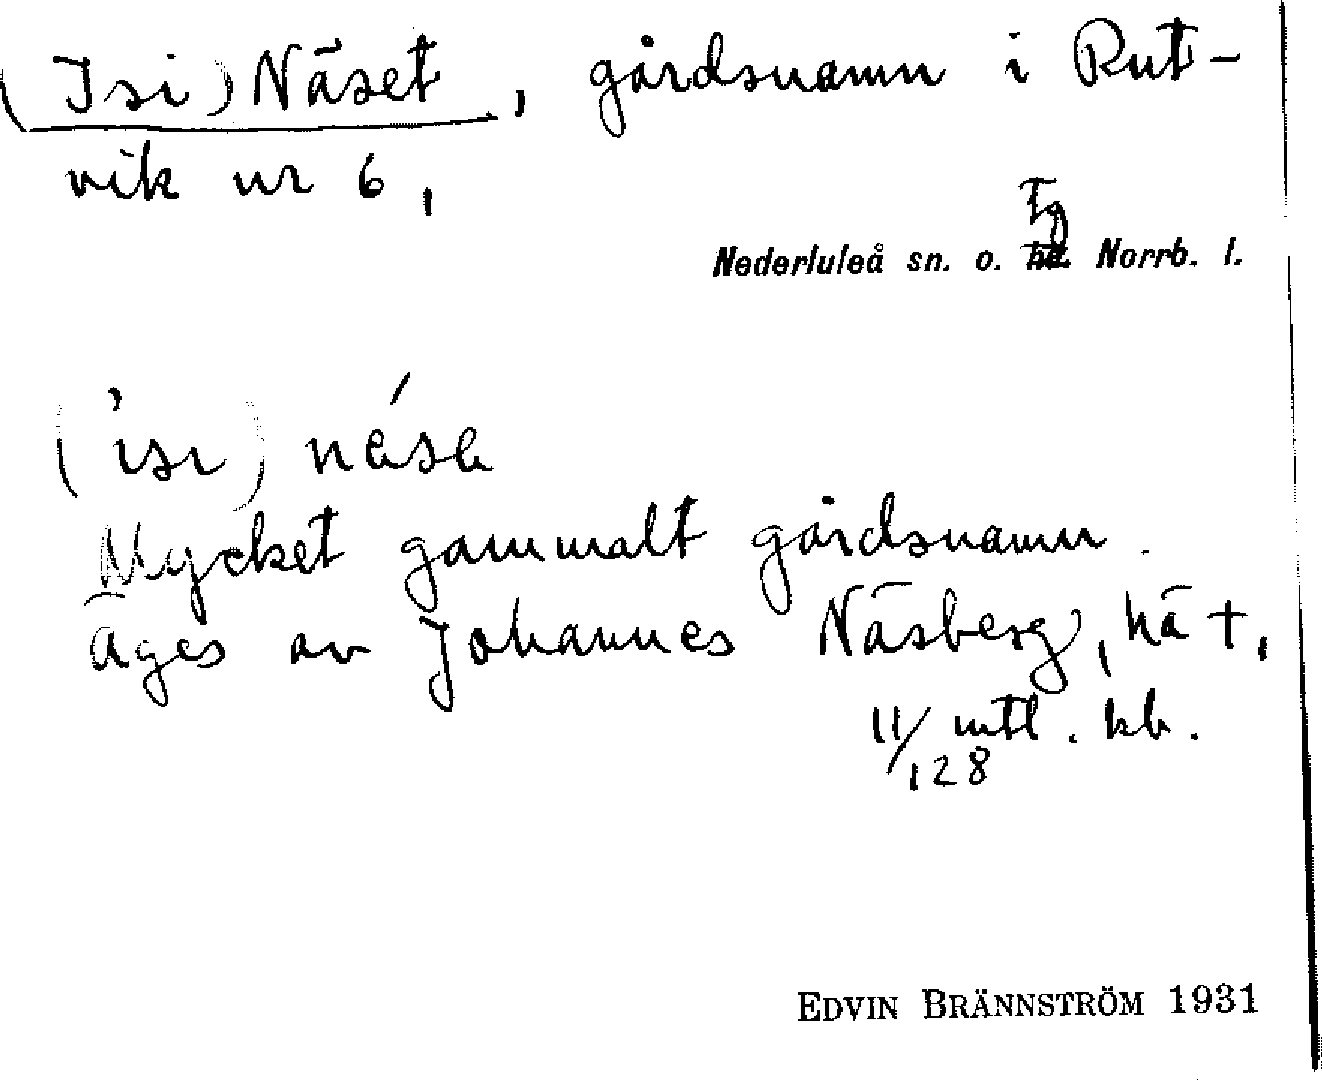 (Isi) Näset, gårdsnamn i Rut-
vik nr 6,
Tg
Nederluleå sn. o. Norrb. l.
Mycket gammalt gårdsnamn.
Äges av Johannes Näsberg,
11/128 mtl. kb.
EDVIN BRÄNNSTRÖM 1931